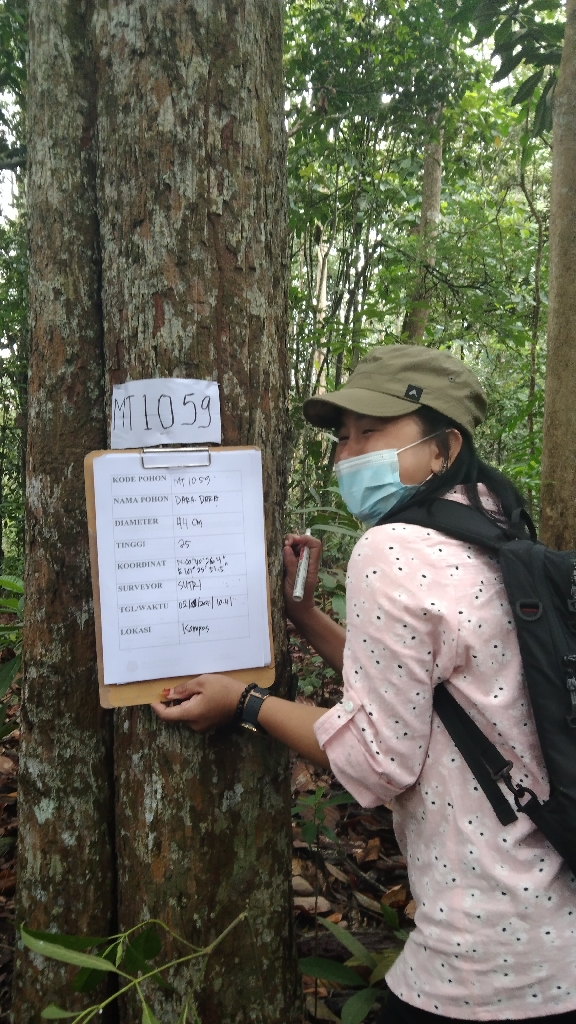 MT1059
KODE POHON MT 1059
NAMA POHON DARA DARA
DIAMETER 44 cm
TINGGI 25
KOORDINAT
SURVEYOR SUTRI
TGL/WAKTU
LOKASI Kompas